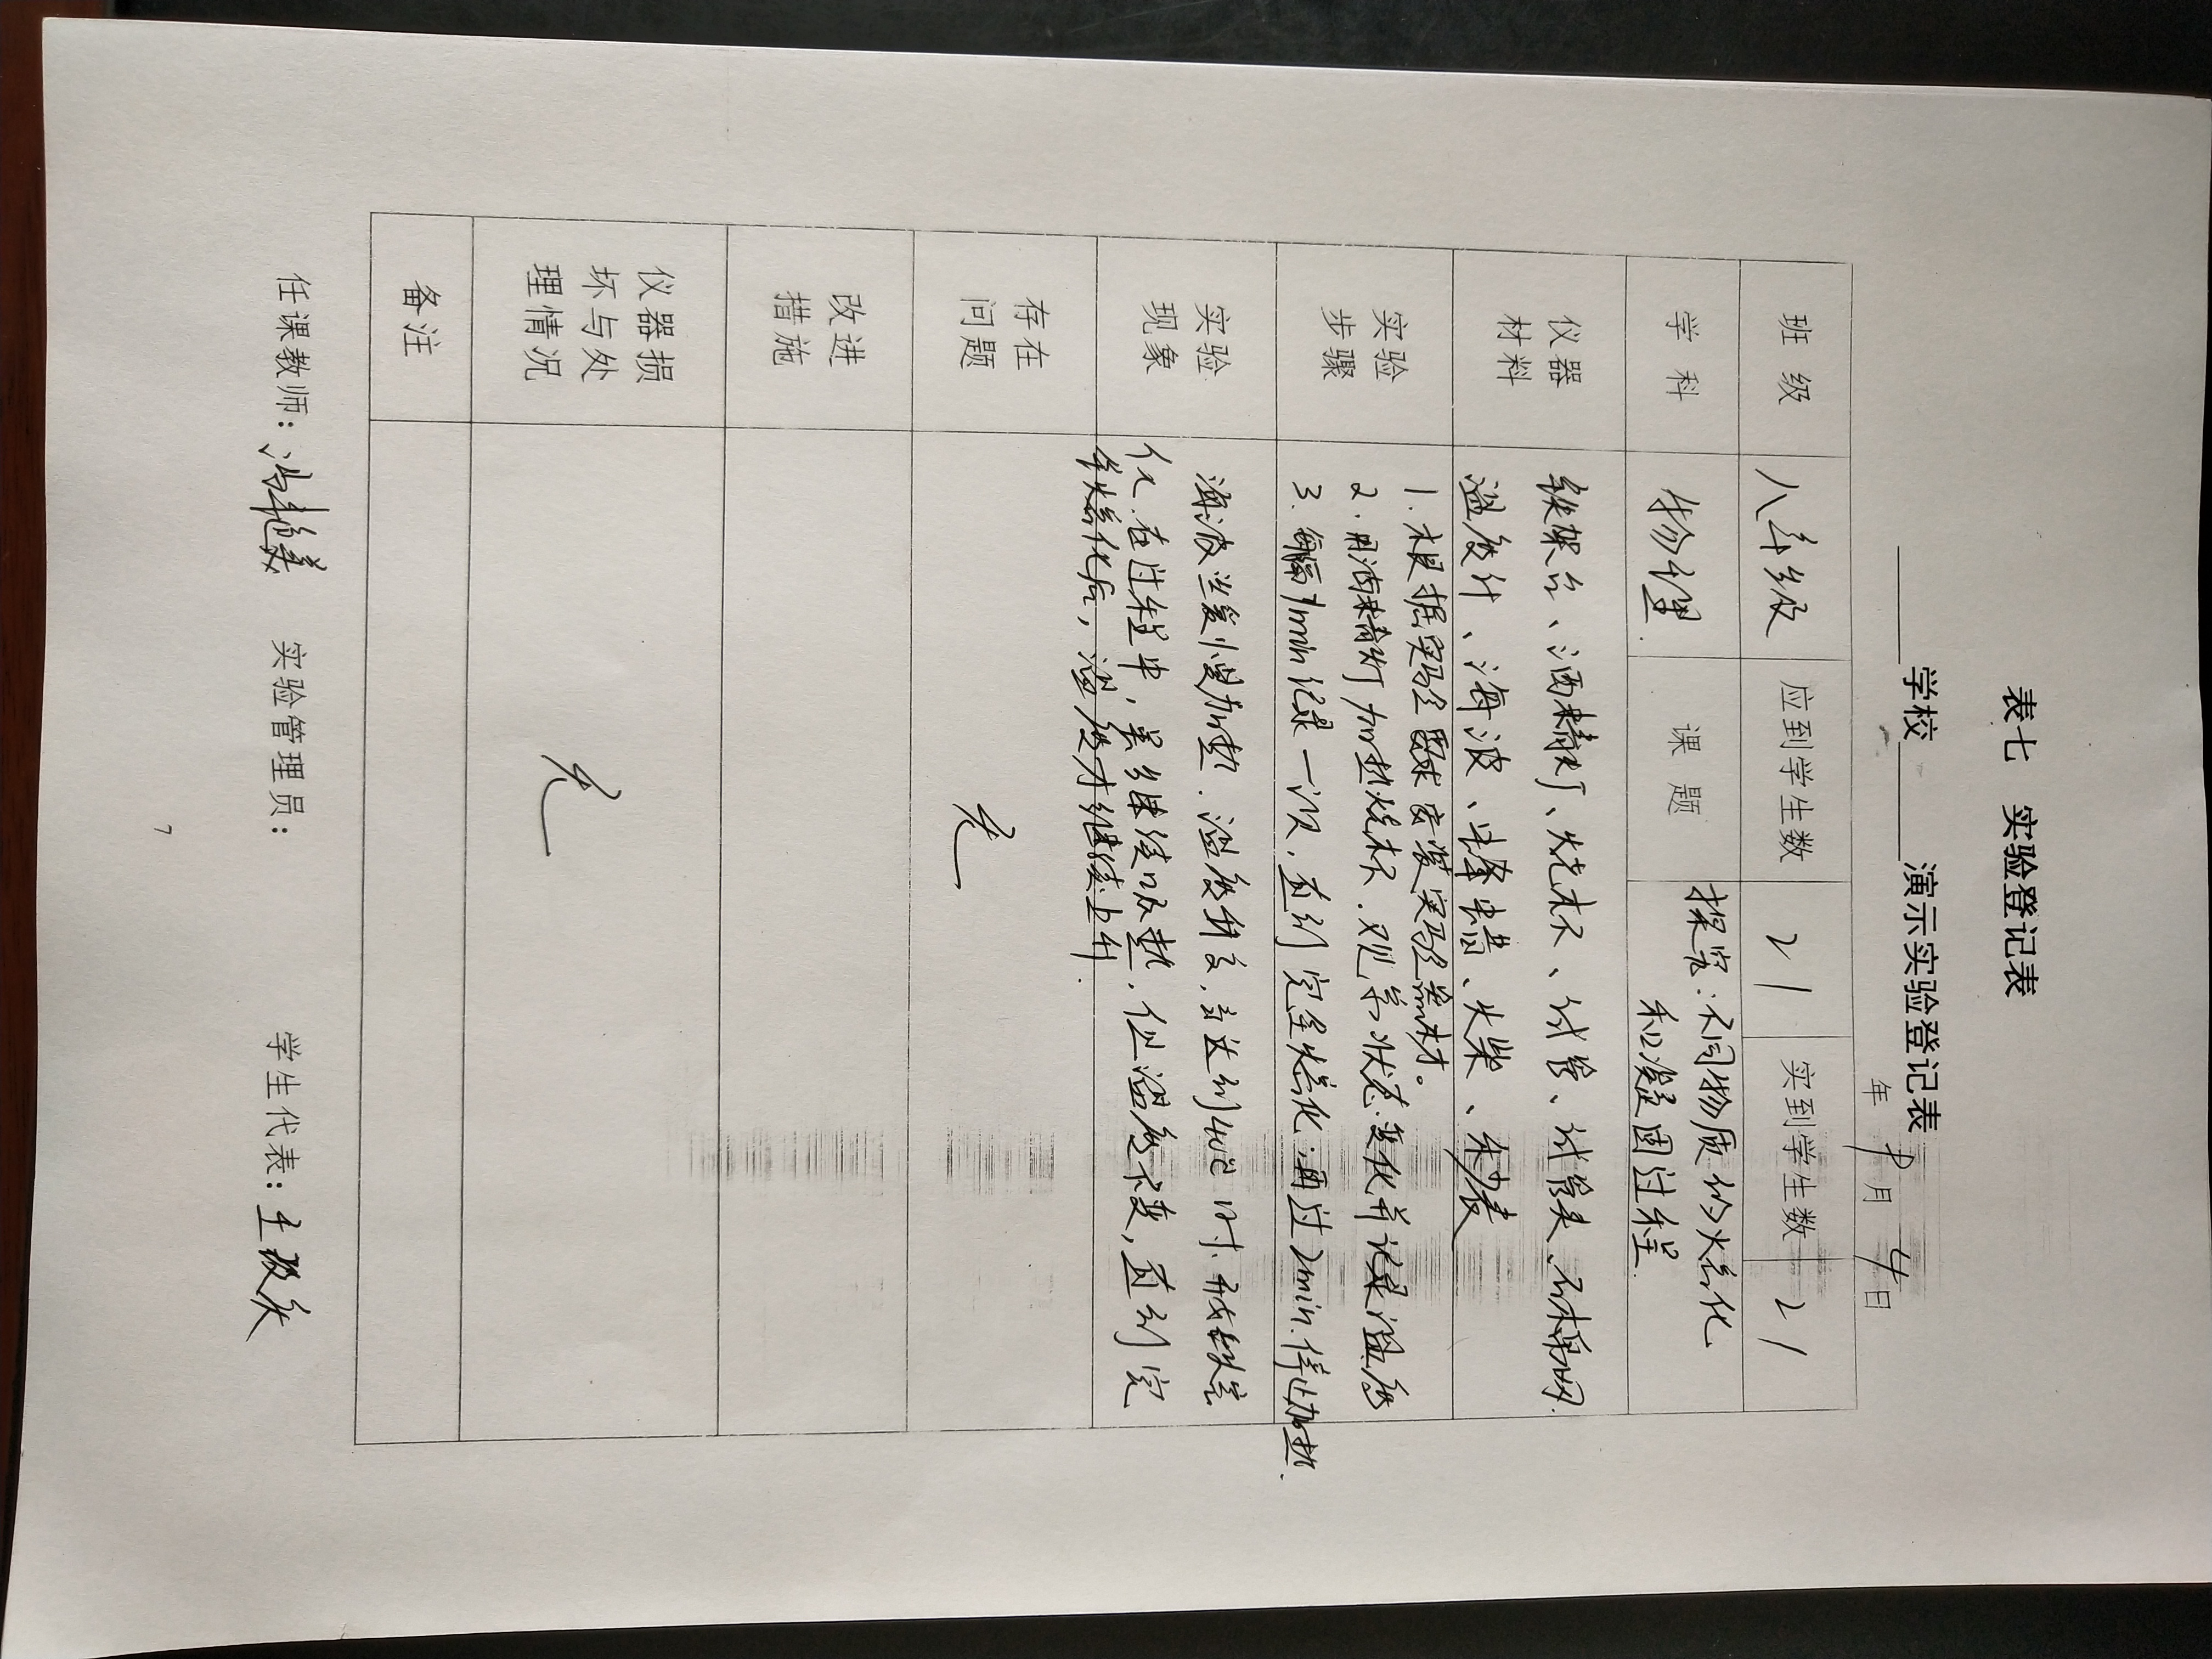 表七 实验登记表
学校 演示实验登记表
年 月 日
班 级 八年级 应到学生数 21 实到学生数 21
学 科 物理. 课 题 探究:不同物质的熔化
和凝固过程.
仪器 铁架台、酒精灯、烧杯、试管、试管夹、石棉网.
材料 温度计、海波、蜂蜡、火柴、
实验 1.根据实验要求安装实验器材。
步骤 2.用酒精灯加热烧杯.观察状态变化并记录温度
3.每隔1min记录一次,直到完全熔化.再过2min.停止加热.
实验 海波当缓慢加热.温度升高,当达到 时.开始熔
现象 化.在过程中,虽继续吸热.但温度不变,直到完
全熔化后,温度才继续上升.
存在
问题 无
改进
措施
仪器损
坏与处 无
理情况
备注
任课教师: 实验管理员: 学生代表:
7